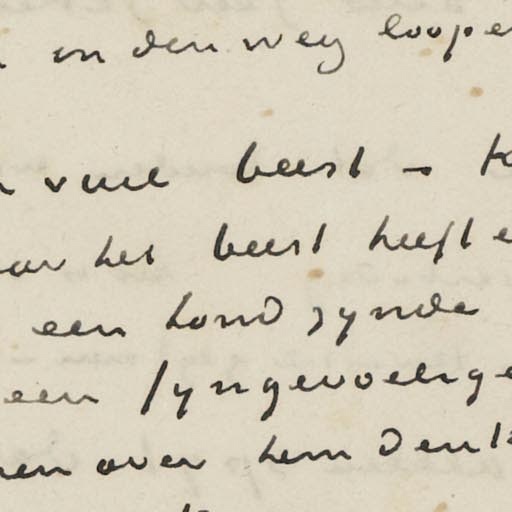 in den weg loope
vuil beest – 
het beest heeft e
een hond zynde
een fyngevoelige
en over hem denk